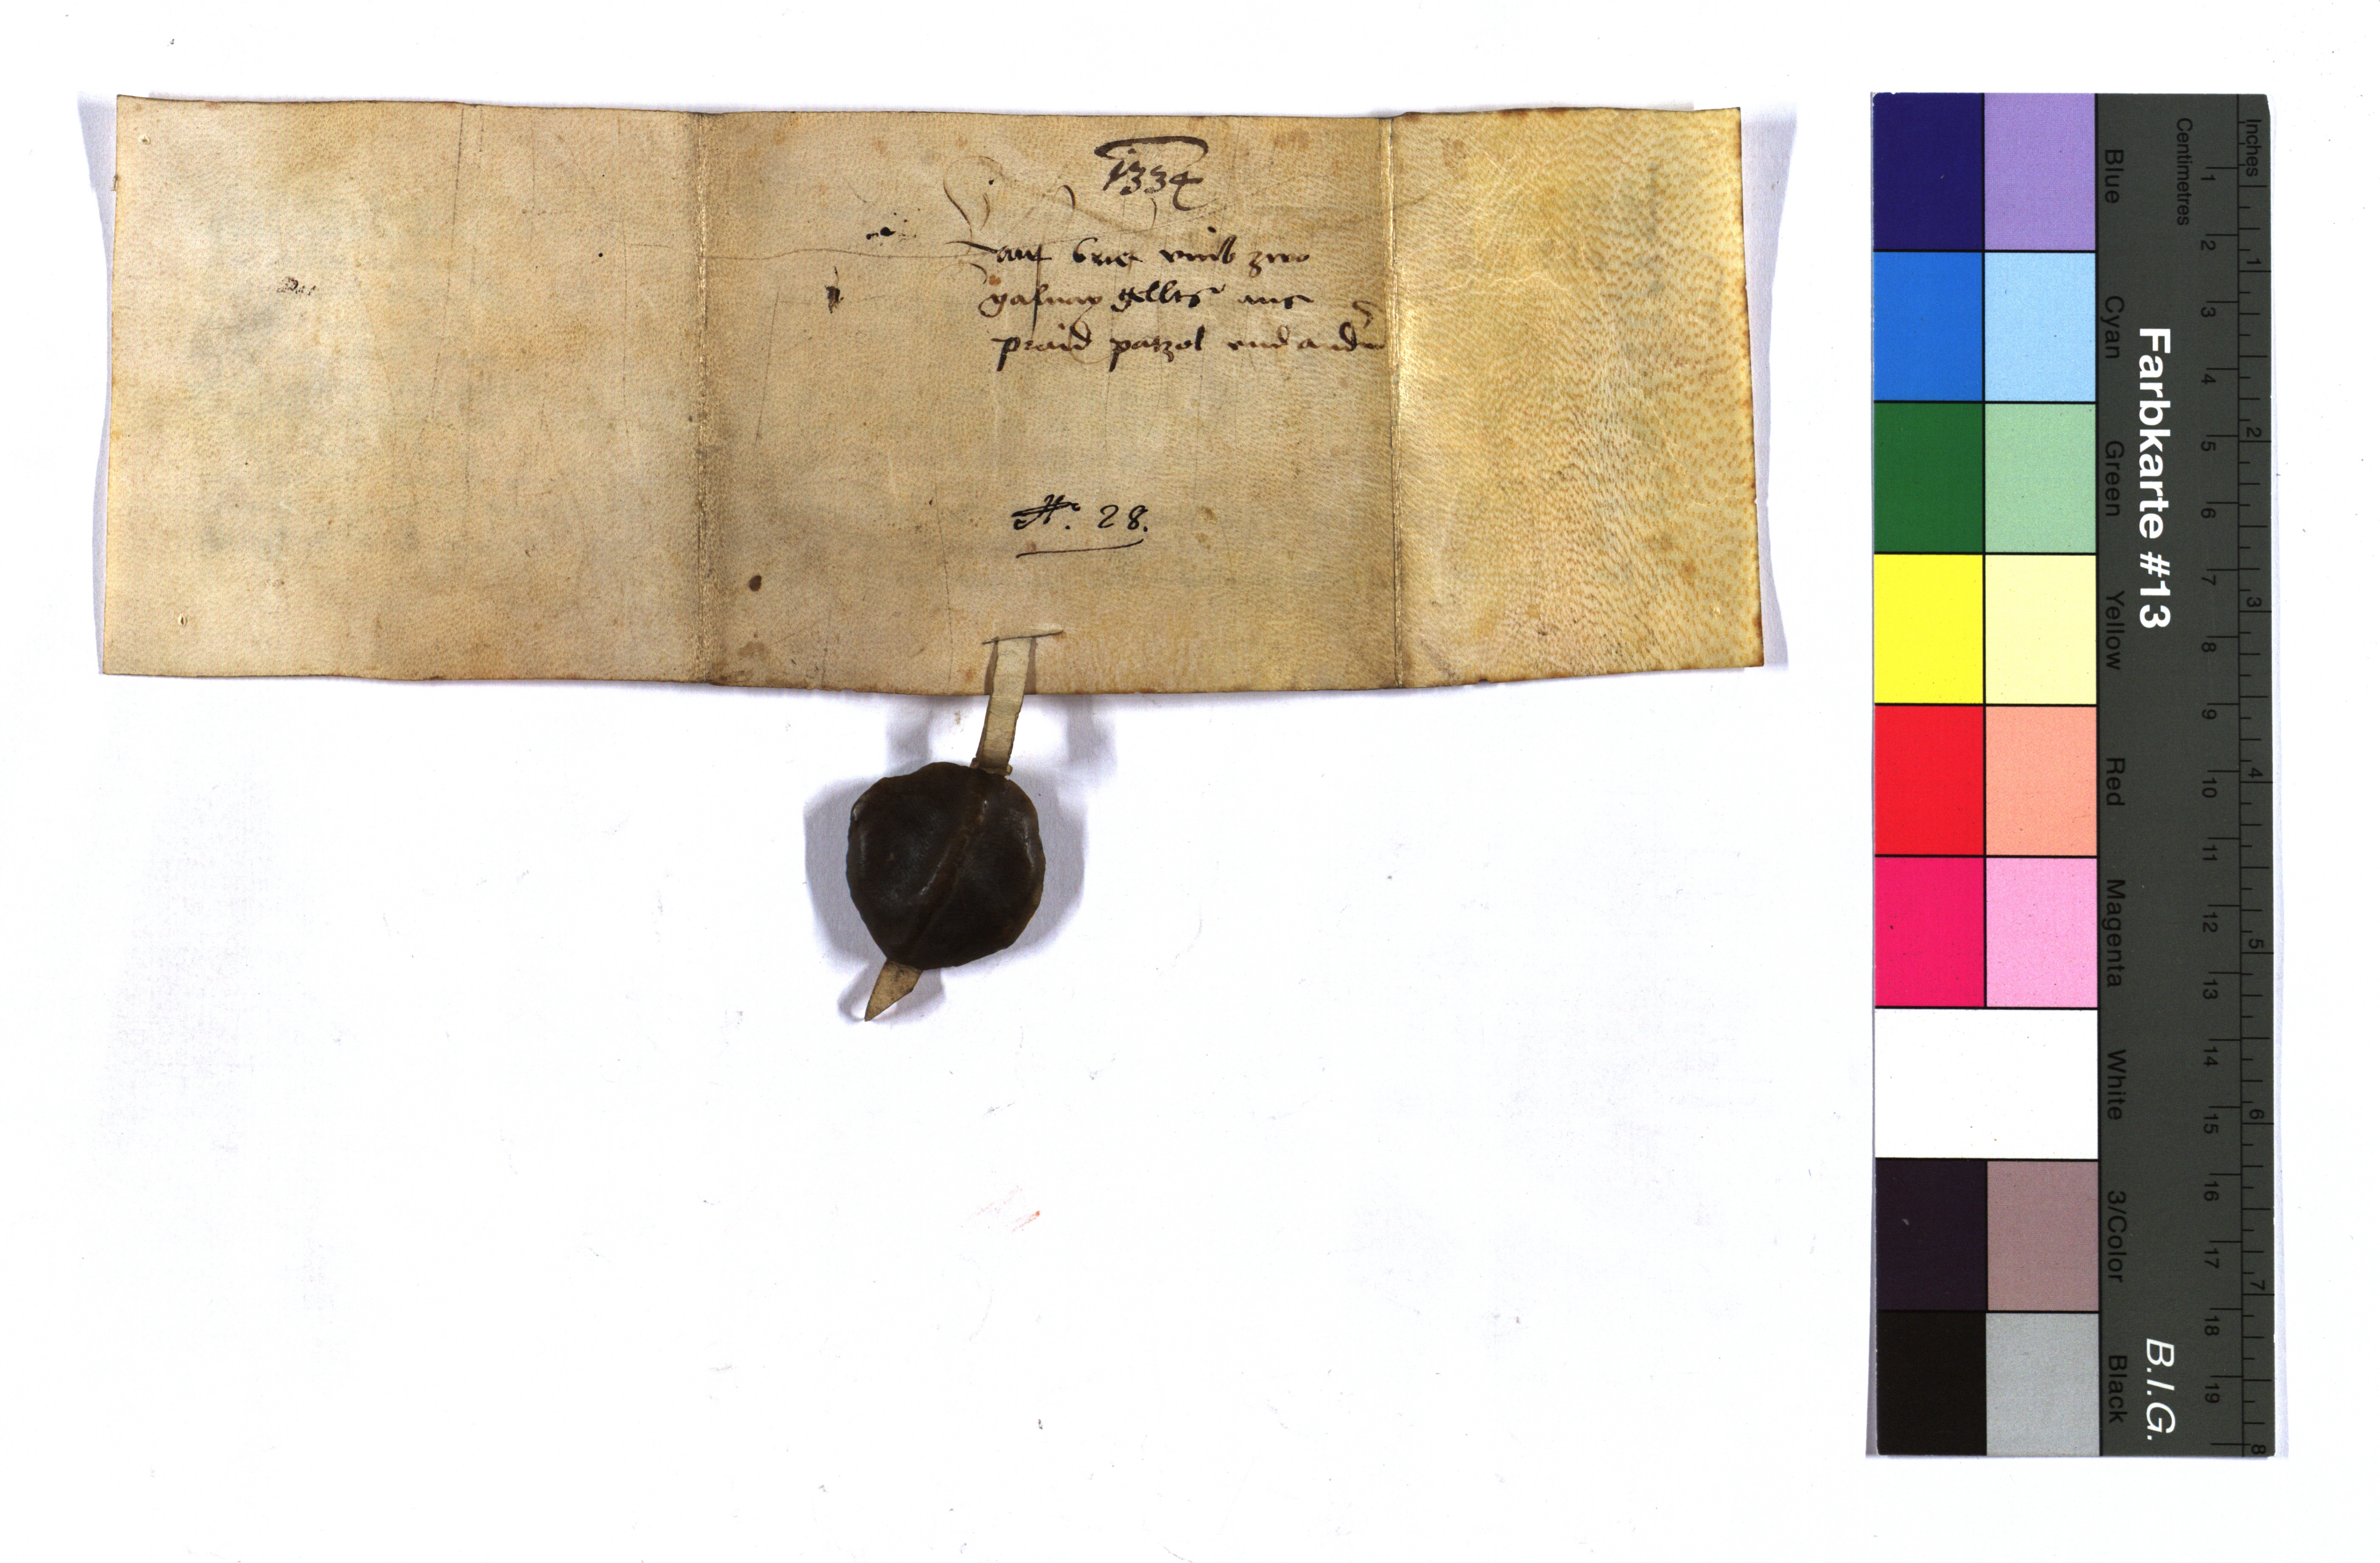 1334
brief vmb zwo
gelltz aus
praid patzol vnd ander
No. 28.
Inches
Centimetres
1 2 3 4 5 6 7 8 9 10 11 12 13 14 15 16 17 18 19
1 2 3 4 5 6 7 8
Blue Cyan Green Yellow Red Magenta White 3/Color Black
Farbkarte #13
B.I.G.